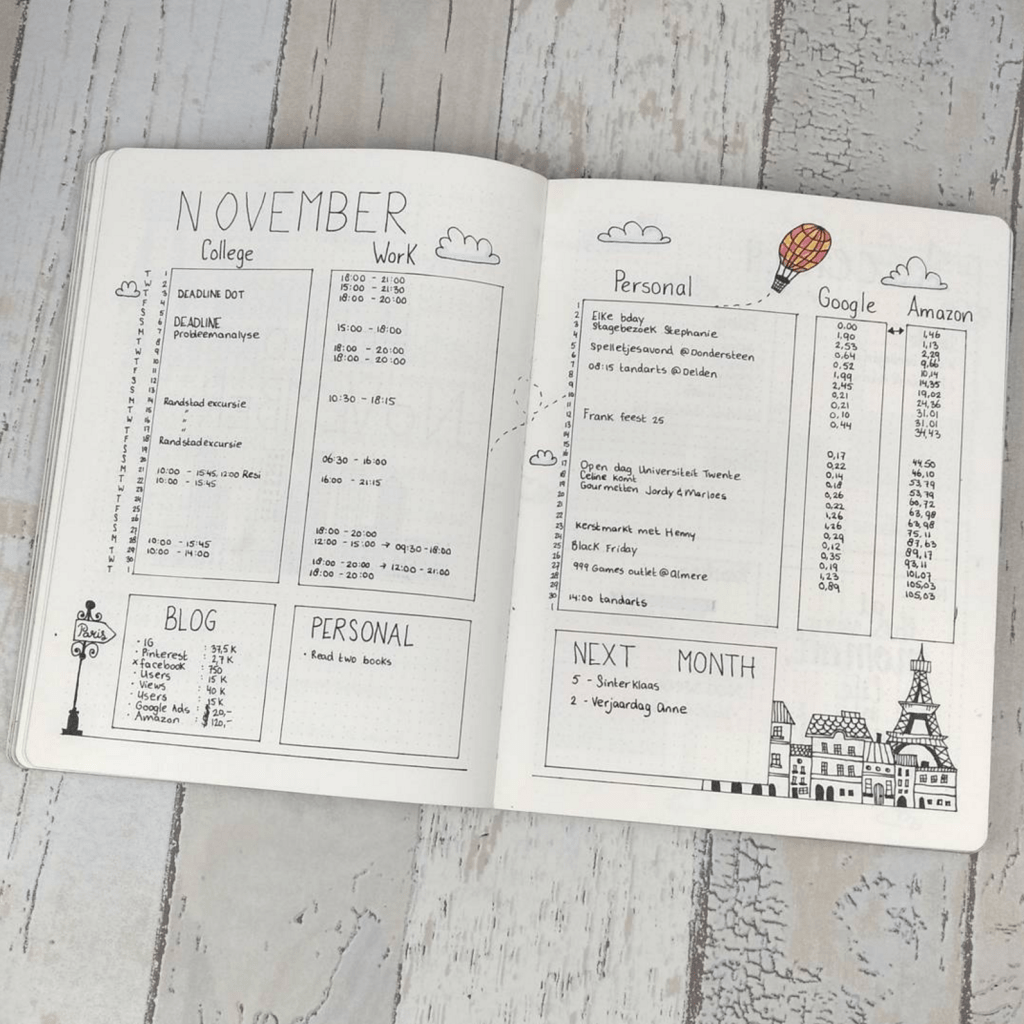 NOVEMBER
College
Work
T 1
W 2
T 3
F 4
S 5
S 6
M 7
T 8
W 9
T 10
F 11
S 12
S 13
M 14
T 15
W 16
T 17
F 18
S 19
S 20
M 21
T 22
W 23
T 24
F 25
S 26
S 27
M 28
T 29
W 30
T 1
DEADLINE DOT
DEADLINE
probleemanalyse
Randstad excursie
"
"
Randstad excursie
10:00 - 15:45, 12:00 Resi
10:00 - 15:45
10:00 - 15:45
10:00 - 14:00
18:00 - 21:00
15:00 - 21:30
18:00 - 20:00
15:00 - 18:00
18:00 - 20:00
18:00 - 20:00
10:30 - 18:15
06:30 - 16:00
16:00 - 21:15
18:00 - 20:00
12:00 - 15:00 → 09:30 - 18:00
18:00 - 20:00 → 12:00 - 21:00
18:00 - 20:00
Paris
BLOG
· IG : 37,5 K
· Pinterest : 2,7 K
× facebook : 750
· Users : 15 K
· Views : 40 K
· Users : 15K
· Google Ads : $ 20,-
· Amazon : $ 120,-
PERSONAL
· Read two books
Personal
1
2
3
4
5
6
7
8
9
10
11
12
13
14
15
16
17
18
19
20
21
22
23
24
25
26
27
28
29
30
1
Elke bday
Stagebezoek Stephanie
Spelletjesavond @Dondersteen
08:15 tandarts @Delden
Frank feest 25
Open dag Universiteit Twente
Celine komt
Gourmetten Jordy & Marloes
kerstmarkt met Henny
Black Friday
999 Games outlet @Almere
14:00 tandarts
Google
0.00
1,90
2,53
0,64
0,52
1,99
2,45
0,21
0,21
0,10
0,44
0,17
0,22
0,14
0,18
0,26
0,22
1,26
1,26
0,29
0,12
0,35
0,19
1,23
0,89
Amazon
1,46
1,13
2,29
9,66
10,14
14,35
19,02
24,36
31,01
31,01
34,43
44,50
46,10
53,79
53,79
60,72
63,98
63,98
75,11
87,63
89,17
93,11
101,07
105,03
105,03
NEXT MONTH
5 - Sinterklaas
2 - Verjaardag Anne